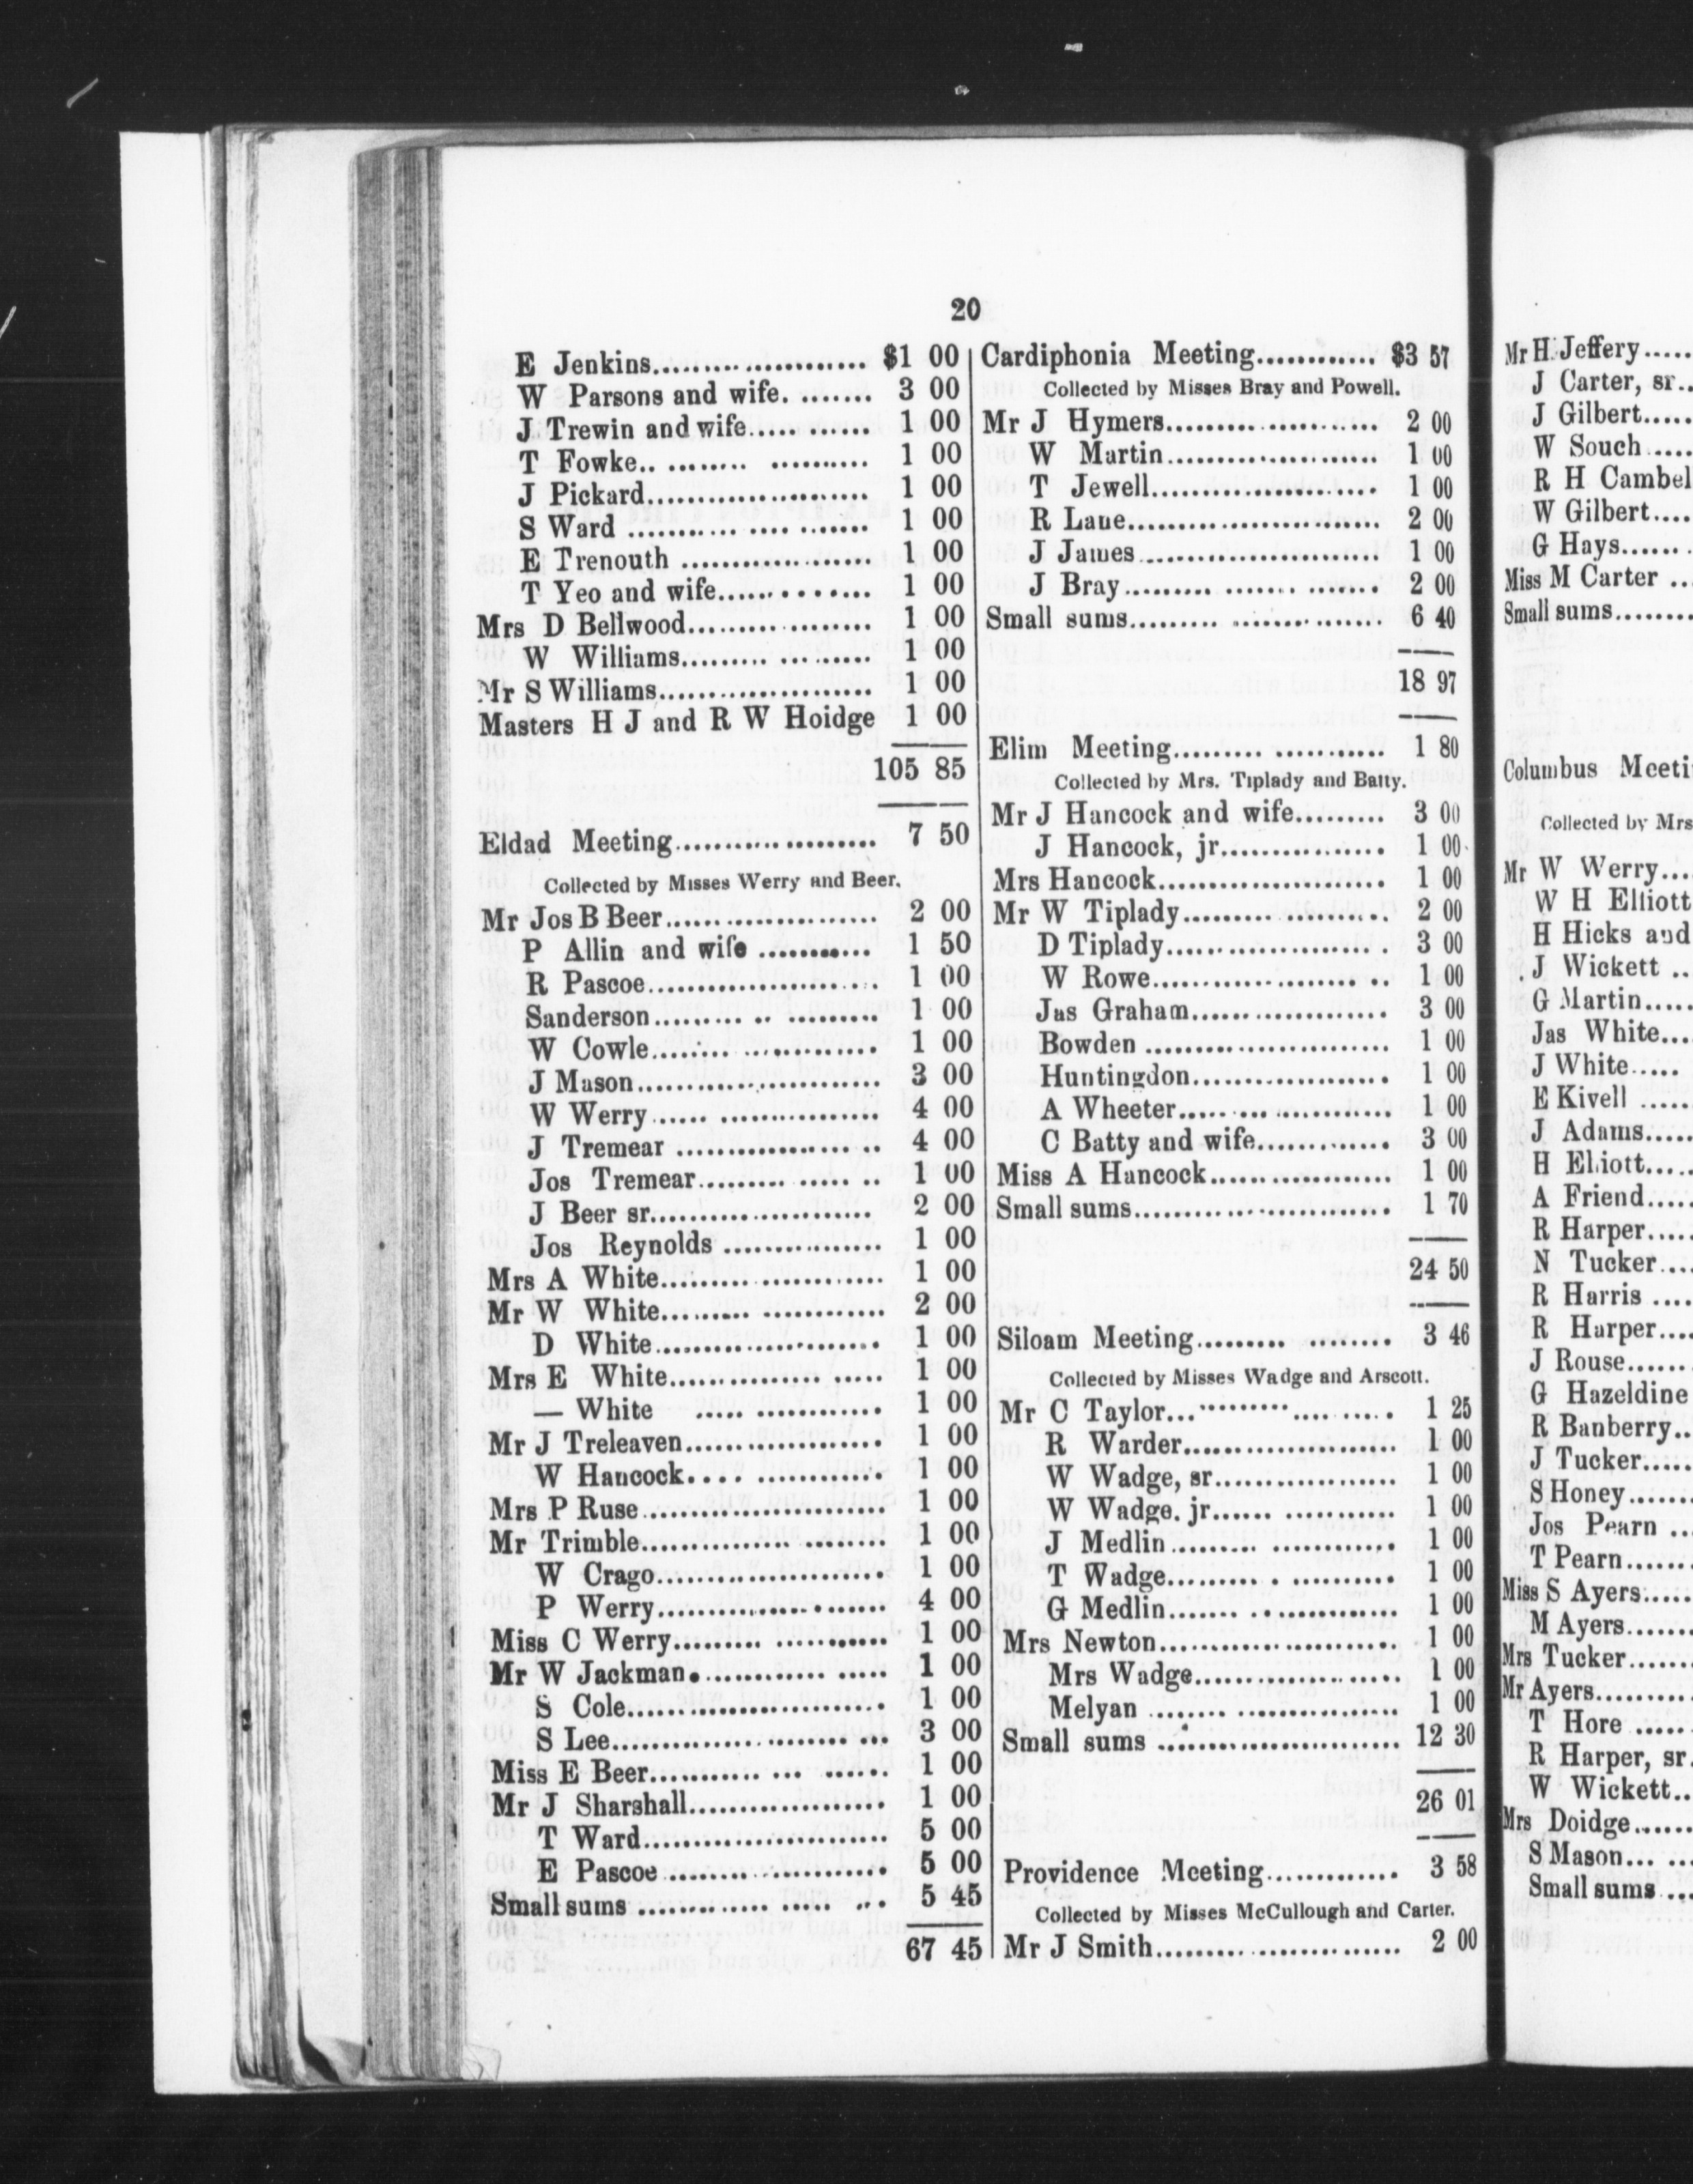 20
E Jenkins..................... $1 00
W Parsons and wife. ....... 3 00
J Trewin and wife..... ...... 1 00
T Fowke.. ........ .......... 1 00
J Pickard...................... 1 00
S Ward ........... .... ....... 1 00
E Trenouth ................... 1 00
T Yeo and wife............... 1 00
Mrs D Bellwood................... 1 00
W Williams......... ......... 1 00
Mr S Williams...................... 1 00
Masters H J and R W Hoidge 1 00
105 85
Eldad Meeting.................... 7 50
Collected by Misses Werry and Beer.
Mr Jos B Beer..................... 2 00
P Allin and wife ............ 1 50
R Pascoe....................... 1 00
Sanderson......... .. ......... 1 00
W Cowle....... .............. 1 00
J Mason......................... 3 00
W Werry...... ................ 4 00
J Tremear ................. .. 4 00
Jos Tremear......... ..... .. 1 00
J Beer sr....................... 2 00
Jos Reynolds ................ 1 00
Mrs A White......... ............ 1 00
Mr W White......... ............ 2 00
D White....................... 1 00
Mrs E White............... ..... 1 00
— White ..... ............. 1 00
Mr J Treleaven.................... 1 00
W Hancock.... ............. 1 00
Mrs P Ruse......................... 1 00
Mr Trimble............... ........ 1 00
W Crago....................... 1 00
P Werry....................... 4 00
Miss C Werry......... ........... 1 00
Mr W Jackman............. ..... 1 00
S Cole.......................... 1 00
S Lee....................... ... 3 00
Miss E Beer........... ... ....... 1 00
Mr J Sharshall.................... 1 00
T Ward......................... 5 00
E Pascoe ........ ............. 5 00
Small sums ............. ..... ... 5 45
67 45
Cardiphonia Meeting............ $3 57
Collected by Misses Bray and Powell.
Mr J Hymers...................... 2 00
W Martin...................... 1 00
T Jewell....................... 1 00
R Lane.......................... 2 00
J James......................... 1 00
J Bray......... ....... ....... 2 00
Small sums......... ............... 6 40
18 97
Elim Meeting......... ........... 1 80
Collected by Mrs. Tiplady and Batty.
Mr J Hancock and wife......... 3 00
J Hancock, jr................. 1 00
Mrs Hancock....................... 1 00
Mr W Tiplady......... .......... 2 00
D Tiplady..................... . 3 00
W Rowe..................... .. 1 00
Jas Graham................... 3 00
Bowden ......................... 1 00
Huntingdon.................... 1 00
A Wheeter..... ... ............ 1 00
C Batty and wife............. 3 00
Miss A Hancock.................. 1 00
Small sums.......................... 1 70
24 50
Siloam Meeting......... ........ 3 46
Collected by Misses Wadge and Arscott.
Mr C Taylor...................... 1 25
R Warder...................... 1 00
W Wadge, sr.................. 1 00
W Wadge. jr...... ........... 1 00
J Medlin ......... ............. 1 00
T Wadge......... . .......... 1 00
G Medlin....... .. ............ 1 00
Mrs Newton........................ 1 00
Mrs Wadge..................... 1 00
Melyan ........ ................ 1 00
Small sums ........................ 12 30
26 01
Providence Meeting............. 3 58
Collected by Misses McCullough and Carter.
Mr J Smith......................... 2 00
Mr H Jeffery.....
J Carter, sr..
J Gilbert.....
W Souch .....
R H Cambel
W Gilbert....
G Hays.......
Miss M Carter ..
Small sums........
Columbus Meeti
Collected by Mrs
Mr W Werry...
W H Elliott
H Hicks and
J Wickett ..
G Martin.....
Jas White...
J White.....
E Kivell .....
J Adams.....
H Elliott.....
A Friend.....
R Harper.....
N Tucker....
R Harris ....
R Harper....
J Rouse......
G Hazeldine
R Banberry..
J Tucker.....
S Honey.......
Jos Pearn ..
T Pearn.......
Miss S Ayers.....
M Ayers.......
Mrs Tucker.......
Mr Ayers..........
T Hore .....
R Harper, sr.
W Wickett..
Mrs Doidge......
S Mason... ...
Small sums ...